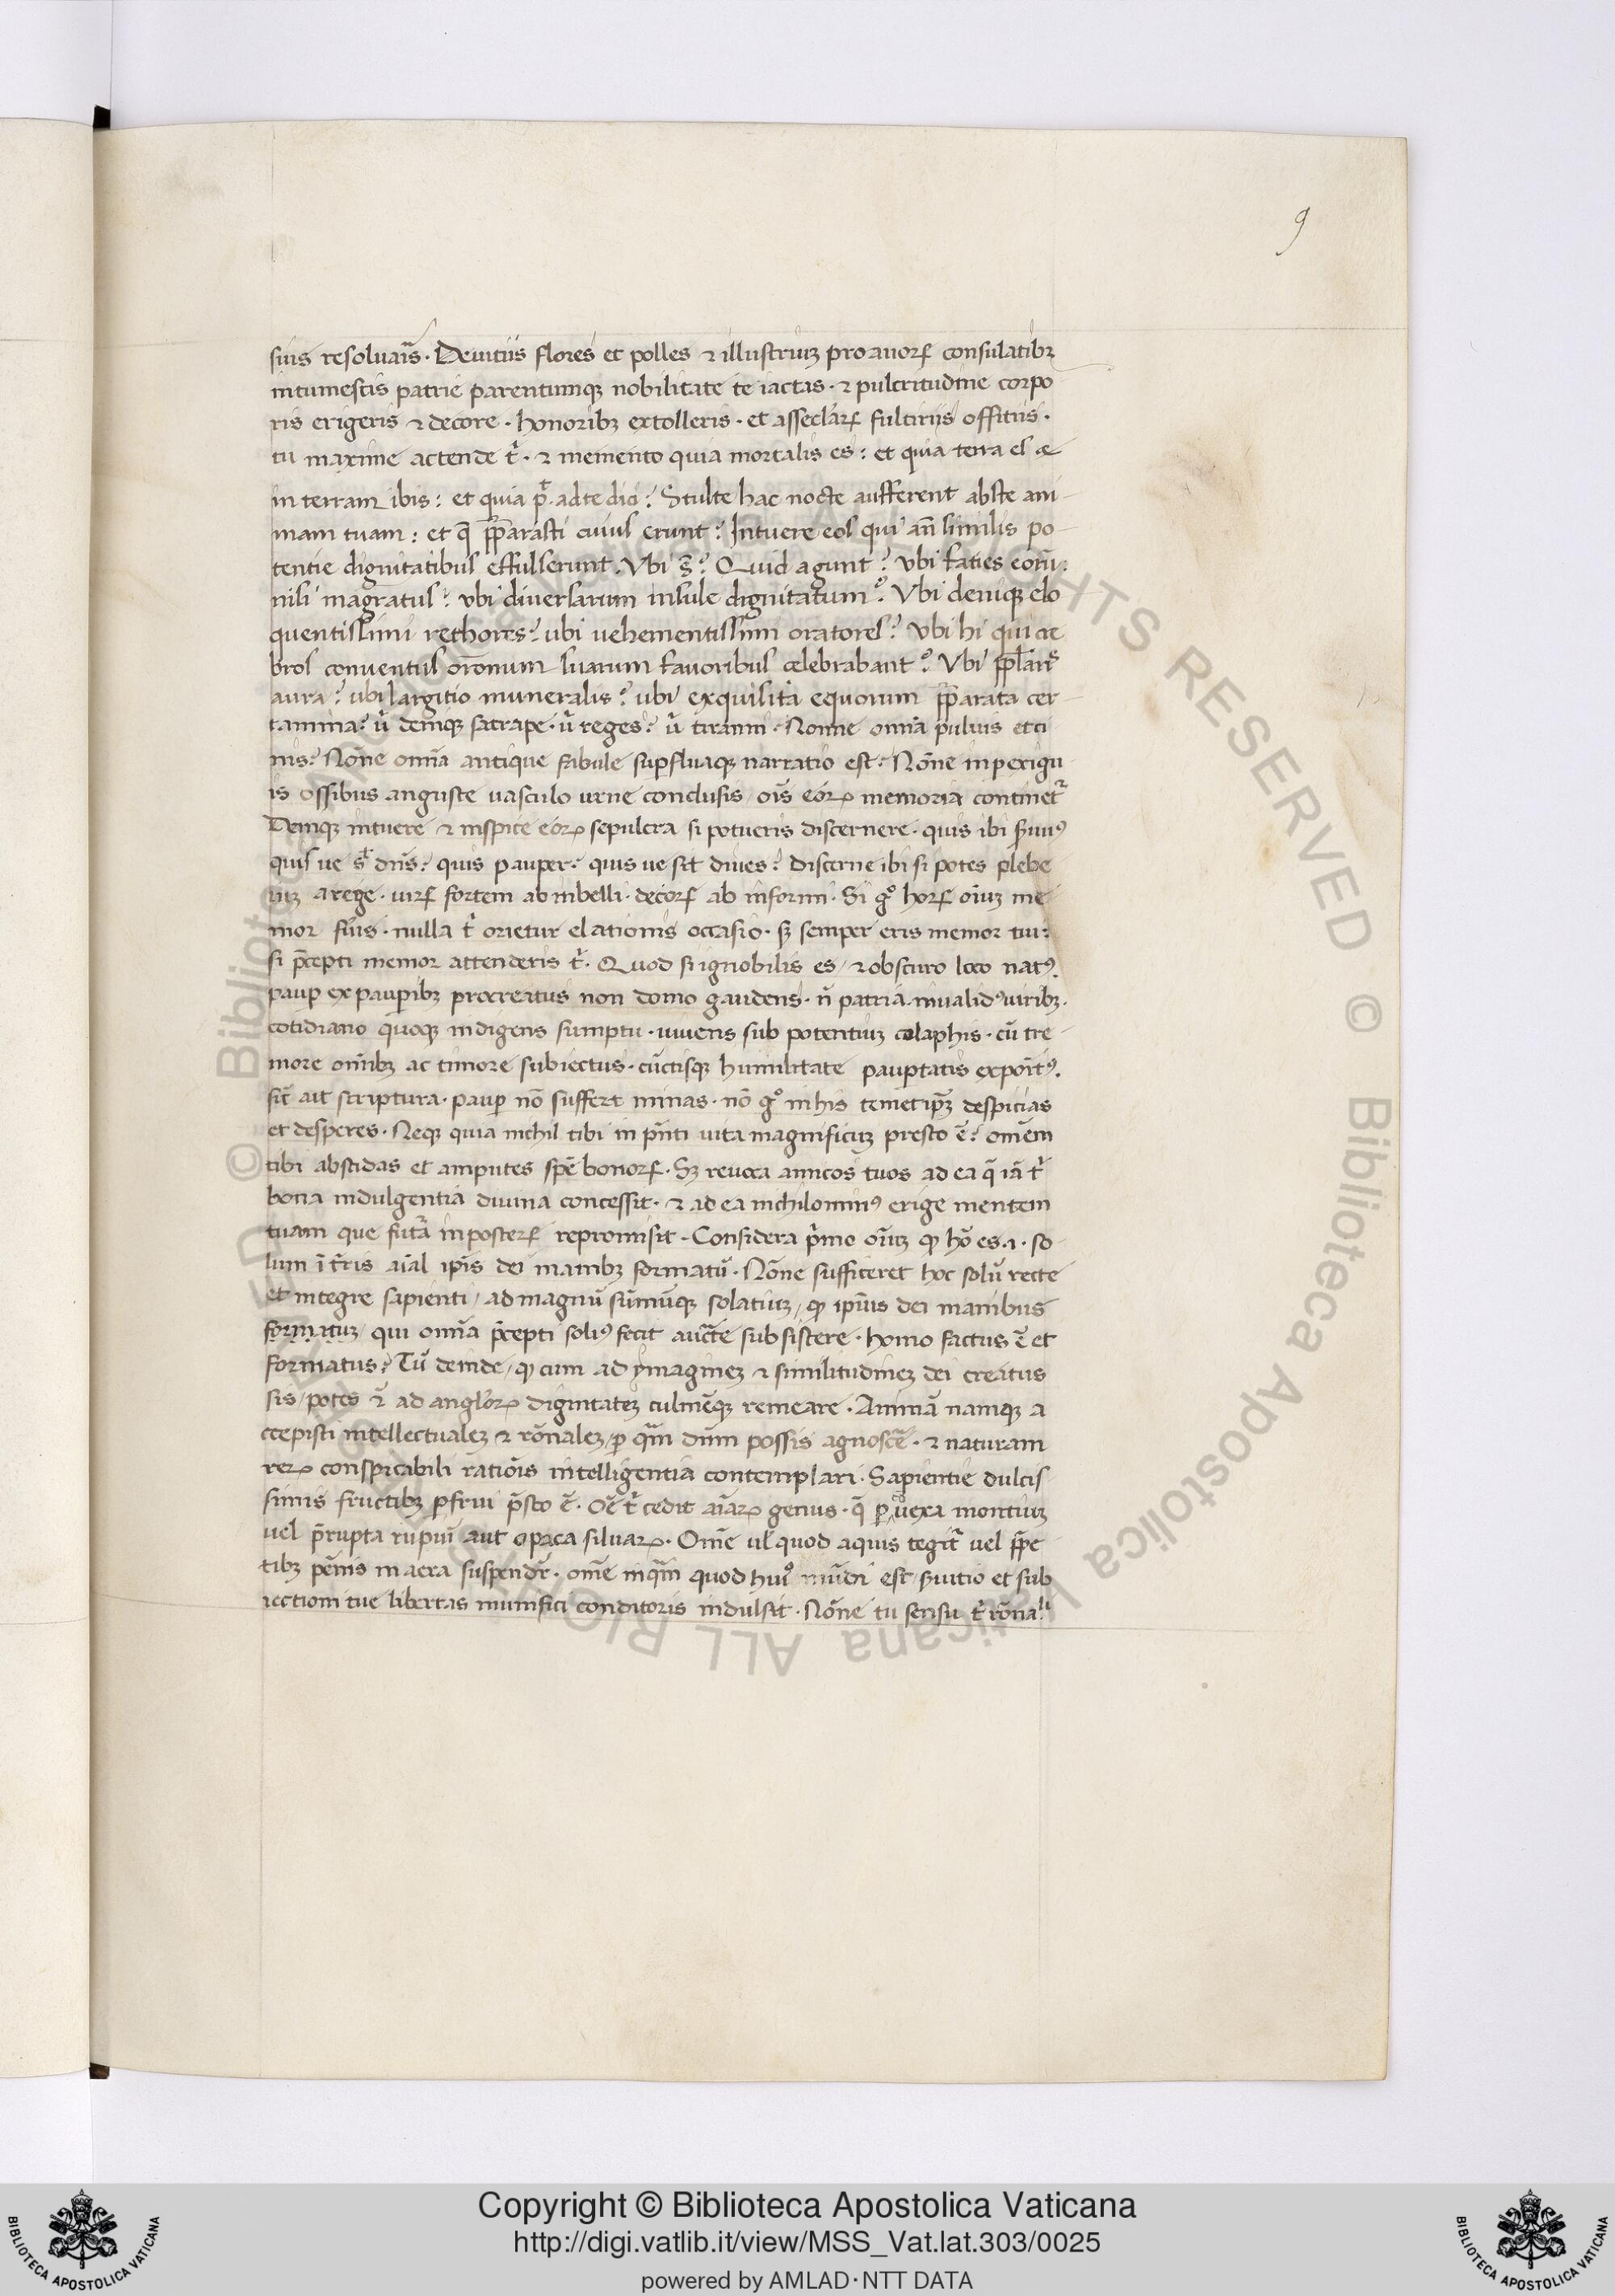 9
suis resoluaīs · Deuitiis flores et polles ⁊ illustriuȝ proauoꝝ consulatibȝ
intumescis patrie parentumqȝ nobilitate te iactas · ⁊ pulcritudine corpo
ris erigeris ⁊ decore · honoribȝ extolleris · et asseclaꝝ fultiriis offitiis ·
tu maxime actende t̉ · ⁊ memento quia mortalis es : et quia terra es ⁊
in terram ibis : et quia adte dici ? Stulte hac nocte aufferent abste ani
mam tuam : et q̄ p̄parasti cuius erunt ? Intuere eos qui an̄ similis po
tentie dignitatibus effulserunt . Vbi s̄ ? Quid agunt ? vbi faties eorū .
nisi magratus ? vbi diuersarum insule dignitatum ? Vbi deniqȝ elo
quentissimi rethores ? ubi uehementissimi oratores ? Vbi hi qui ce
bros conuentus orōnum suarum fauoribus celebrabant ? Vbi
aura ? ubi largitio muneralis ? ubi exquisita equorum p̄parata cer
tamina ? ū deniqȝ satrape · ū reges ? ū tiranni · Nonne omnā puluis et ci
nis ? Nōne omnā antique fabule suꝑfluaqȝ narratio est ? Nōne in ꝑexigu
is ossibus anguste uasculo urne conclusis / oīs eoꝝ memoria continet᷑
Deniqȝ intuere ⁊ inspice eoꝝ sepulcra si potueris discernere · quis ibi ꝯ
quis ue s̄t dn̄s ? quis pauper · quis ue sit diues ? discerne ibi si potes plebe
iuȝ a rege · uirꝝ fortem ab inbelli · decorꝝ ab informi · Si gͦ hoꝝ oīuȝ me
mor fūis · nulla t̉ orietur elationis occasio · sȝ semper eris memor tui :
si p̄cepti memor attenderis t̉ · Quod si ignobilis es / ⁊ obscuro loco natꝰ
pauꝑ ex pauꝑibȝ procreatus non domo gaudens · n̄ patria · inualidꝰ uiribȝ .
cotidiano quoqȝ indigens sumptu · uiuens sub potentiuȝ colaphis · cū tre
more omībȝ ac timore subiectus · cūctisqȝ humilitate pauꝑtatis expoītꝰ .
sic̄ ait scriptura · pauꝑ nō suffert minas · nō gͦ in his temet ip̄ȝ despicias
et desperes · Neqȝ quia nichil tibi in pn̄ti uita magnificuȝ presto ē ? omēm
tibi abscidas et amputes spē bonoꝝ · Sȝ reuoca amicos tuos ad ea q̄ iā t̉
bona indulgentia diuina concessit · ⁊ ad ea nichilominꝰ erige mentem
tuam que futā in posteꝝ repromisit · Considera p̄mo oīuȝ ꝙ hō es .1. so
lum ī tr̄is aīal ip̄is dei manibȝ formatū · Nōne sufficeret hoc solū recte
et integre sapienti / ad magnū sūmūqȝ solatiuȝ / ꝙ ip̄ius dei manibus
formatuȝ / qui omnā p̄cepti solꝰ fecit subsistere · homo factus ē et
formatus ? Tū deinde / ꝙ cum ad ymagineȝ ⁊ similitudineȝ dei creatus
sis / potes ⁊̄ ad angloꝝ dignitateȝ culmēqȝ remeare · Animā namqȝ a
ccepisti intellectualeȝ ⁊ rōnaleȝ / ꝑ qm̄ dūm possis agnoscē · ⁊ naturam
reꝝ conspicabili ratiōis intelligentia contemplari · Sapientie dulcis
simis fructibȝ ꝑfrui p̄sto ē · Oē t̉ cedit aīaꝝ genus · q̄ ꝑ uexa montiuȝ
uel p̄rupta rupuī aut opaca siluaꝝ · Omē ul̄ quod aquis tegit᷑ uel p̄pe
tibȝ pēnis in aera suspendr̄ · omē inqm̄ quod huiꝰ mūdi est / ꝯuitio et sub
iectioni tue libertas munifici conditoris indulsit · Nōne tu sensu t̉ rōnali
Copyright © Biblioteca Apostolica Vaticana
http://digi.vatlib.it/view/MSS_Vat.lat.303/0025
powered by AMLAD · NTT DATA
BIBLIOTECA APOSTOLICA VATICANA
BIBLIOTECA APOSTOLICA VATICANA
© Biblioteca Apostolica Vaticana ALL RIGHTS RESERVED © Biblioteca Apostolica Vaticana ALL RIGHTS RESERVED